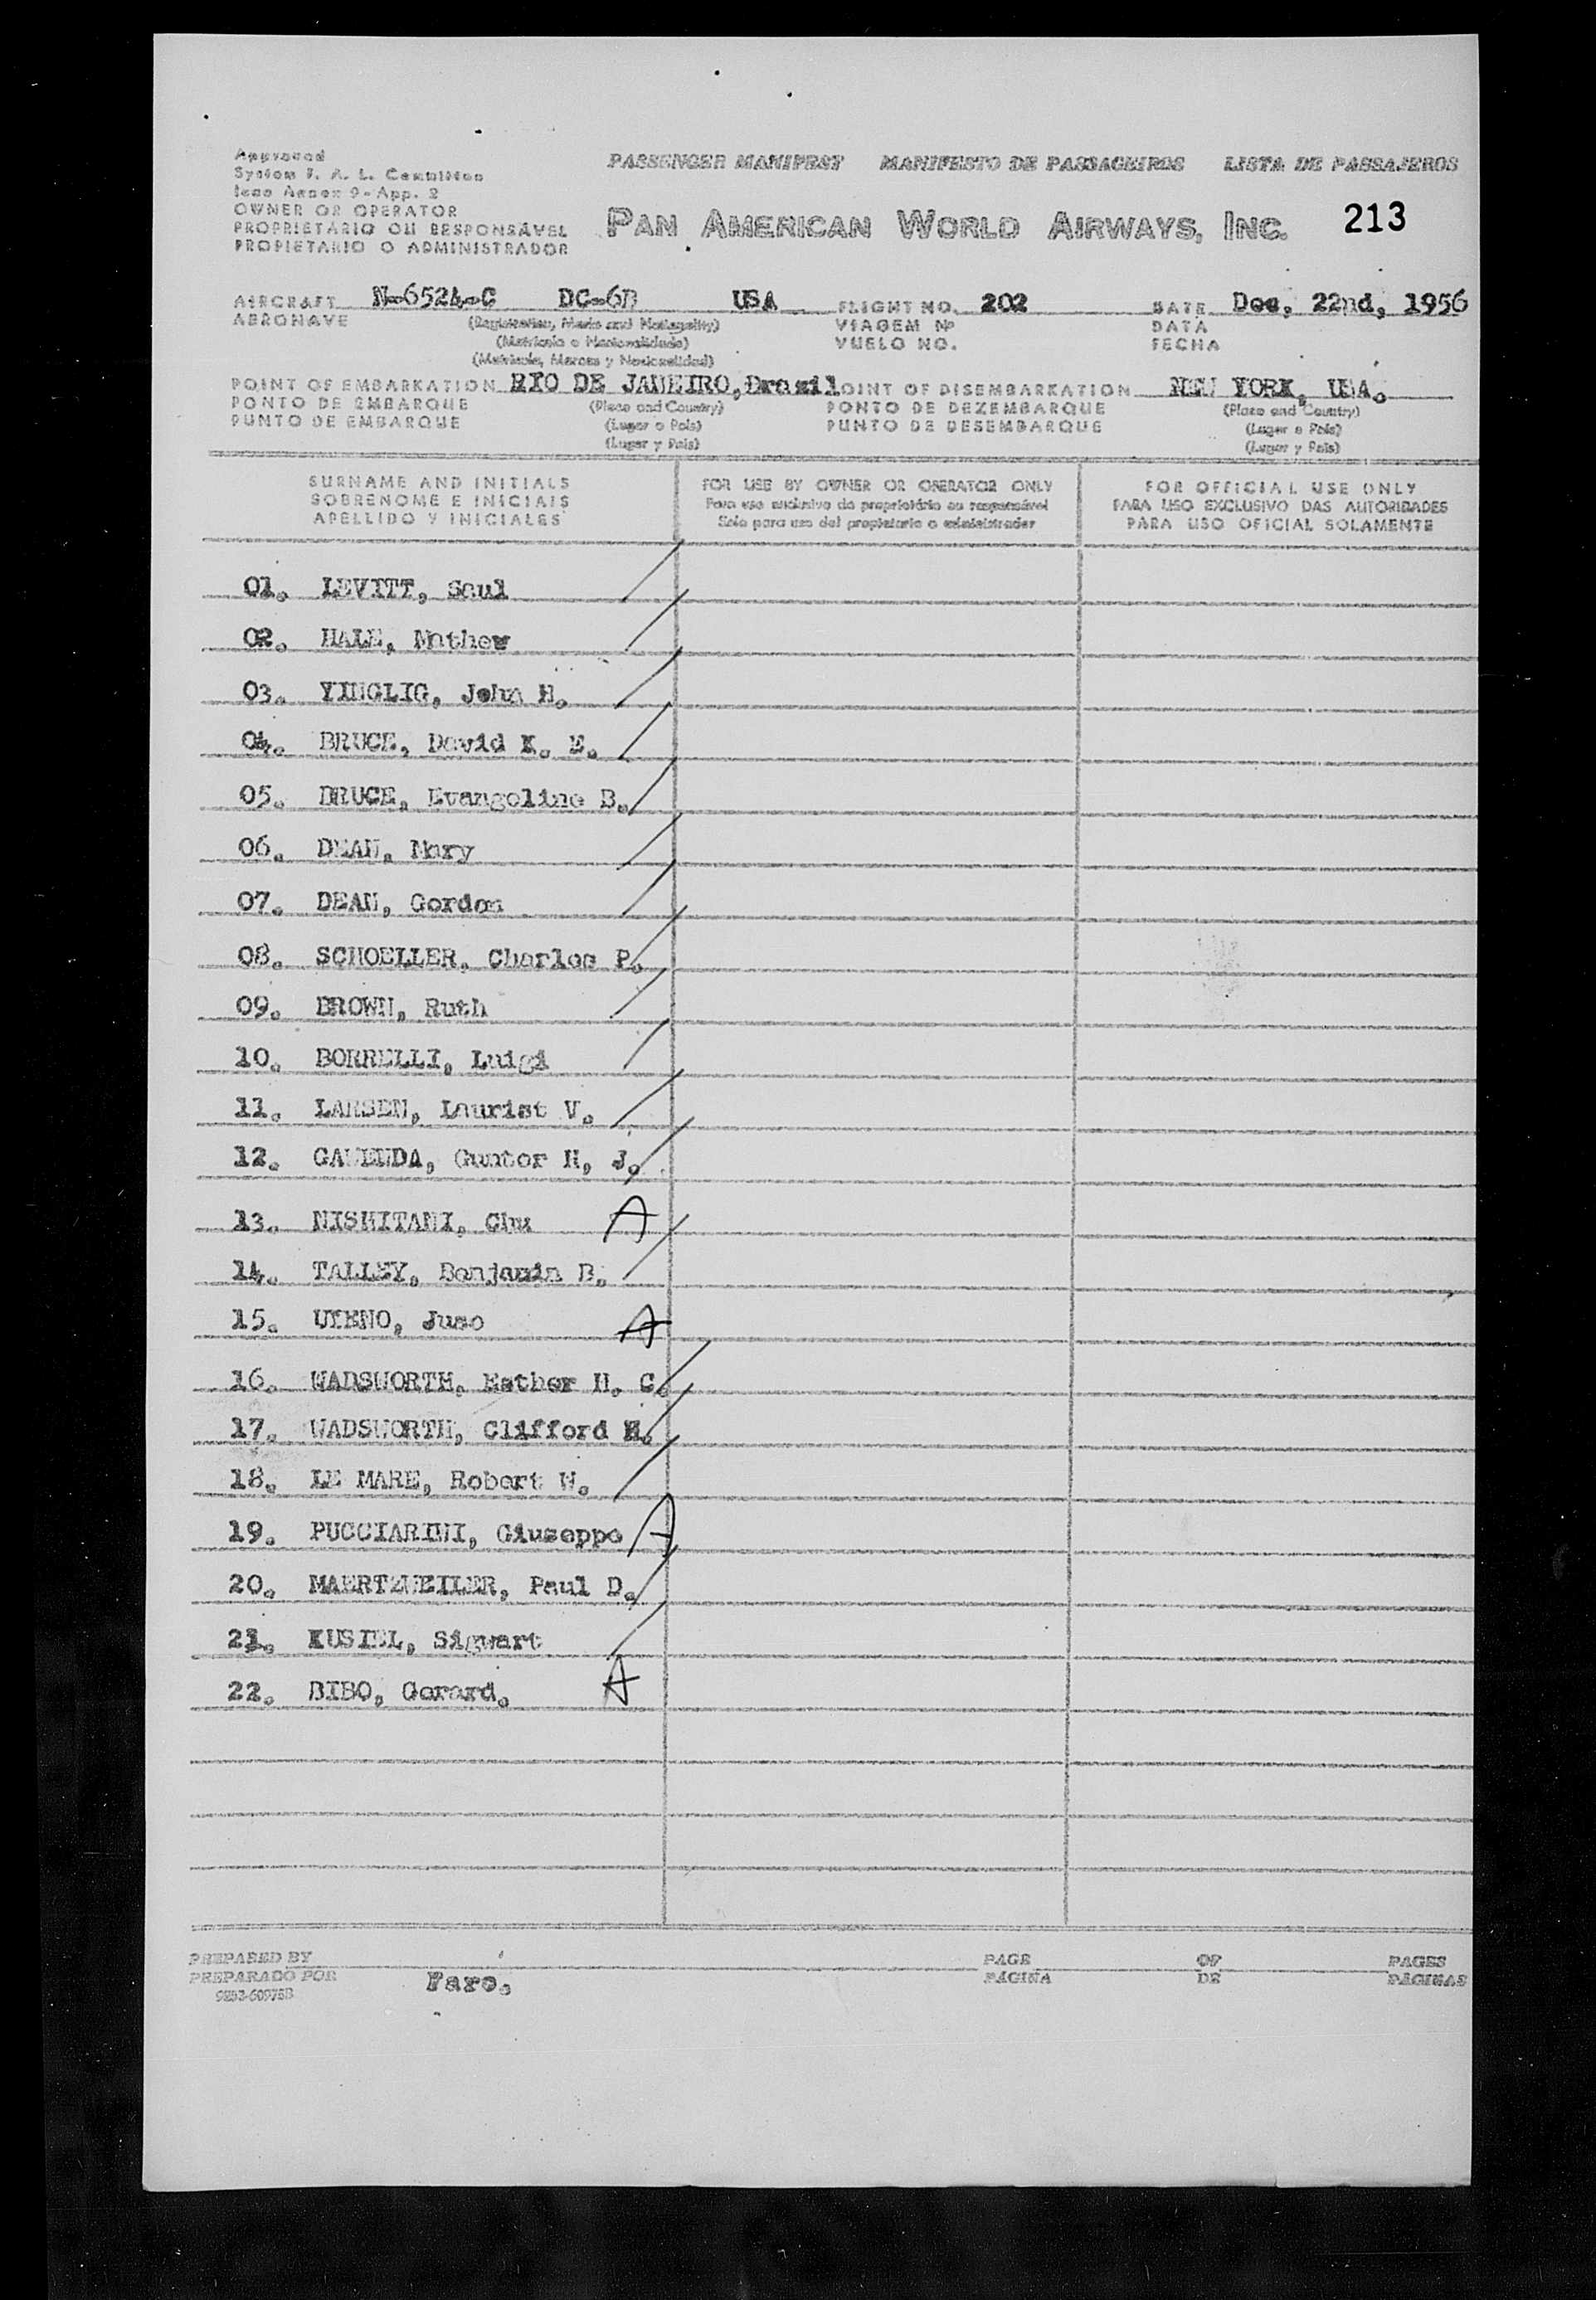 Approved
System F. A. L. Committee
Icao Annex 9 - App. 2
OWNER OR OPERATOR
PROPRIETÁRIO OU RESPONSÁVEL
PROPIETARIO O ADMINISTRADOR
PASSENGER MANIFEST MANIFESTO DE PASSAGEIROS LISTA DE PASAJEROS
PAN AMERICAN WORLD AIRWAYS, INC. 213
AIRCRAFT N-6524-C DC-6B USA FLIGHT NO. 202 DATE Dec, 22nd, 1956
AERONAVE (Registration, Marks and Nationality) VIAGEM Nº DATA
(Matrícula e Nacionalidade) VUELO NO. FECHA
(Matrícula, Marcas y Nacionalidad)
POINT OF EMBARKATION RIO DE JANEIRO, Brazil OINT OF DISEMBARKATION NEW YORK, USA.
PONTO DE EMBARQUE (Place and Country) PONTO DE DEZEMBARQUE (Place and Country)
PUNTO DE EMBARQUE (Lugar e País) PUNTO DE DESEMBARQUE (Lugar e País)
(Lugar y País) (Lugar y País)
SURNAME AND INITIALS FOR USE BY OWNER OR OPERATOR ONLY FOR OFFICIAL USE ONLY
SOBRENOME E INICIAIS Para uso exclusivo do proprietário ou responsável PARA USO EXCLUSIVO DAS AUTORIDADES
APELLIDO Y INICIALES Solo para uso del propietario o administrador PARA USO OFICIAL SOLAMENTE
01. LEVITT, Saul
02. HALE, Mathew
03. YINGLIG, John H.
04. BRUCE, David K. E.
05. BRUCE, Evangeline B.
06. DEAN, Mary
07. DEAN, Gordon
08. SCHOELLER, Charles P.
09. BROWN, Ruth
10. BORRELLI, Luigi
11. LARSEN, Laurist V.
12. Gunter H, J.
13. NISHITANI, Chu A
14. TALLEY, Benjamin B.
15. UYENO, Juso A
16. WADSWORTH, Esther H. C.
17. WADSWORTH, Clifford H.
18. LE MARE, Robert W.
19. PUCCIARINI, Giuseppe A
20. MAERTZWEILER, Paul D.
21. KUSIEL, Sigwart
22. BIBO, Gerard. A
PREPARED BY PAGE OF PAGES
PREPARADO POR Faro. PÁGINA DE PÁGINAS